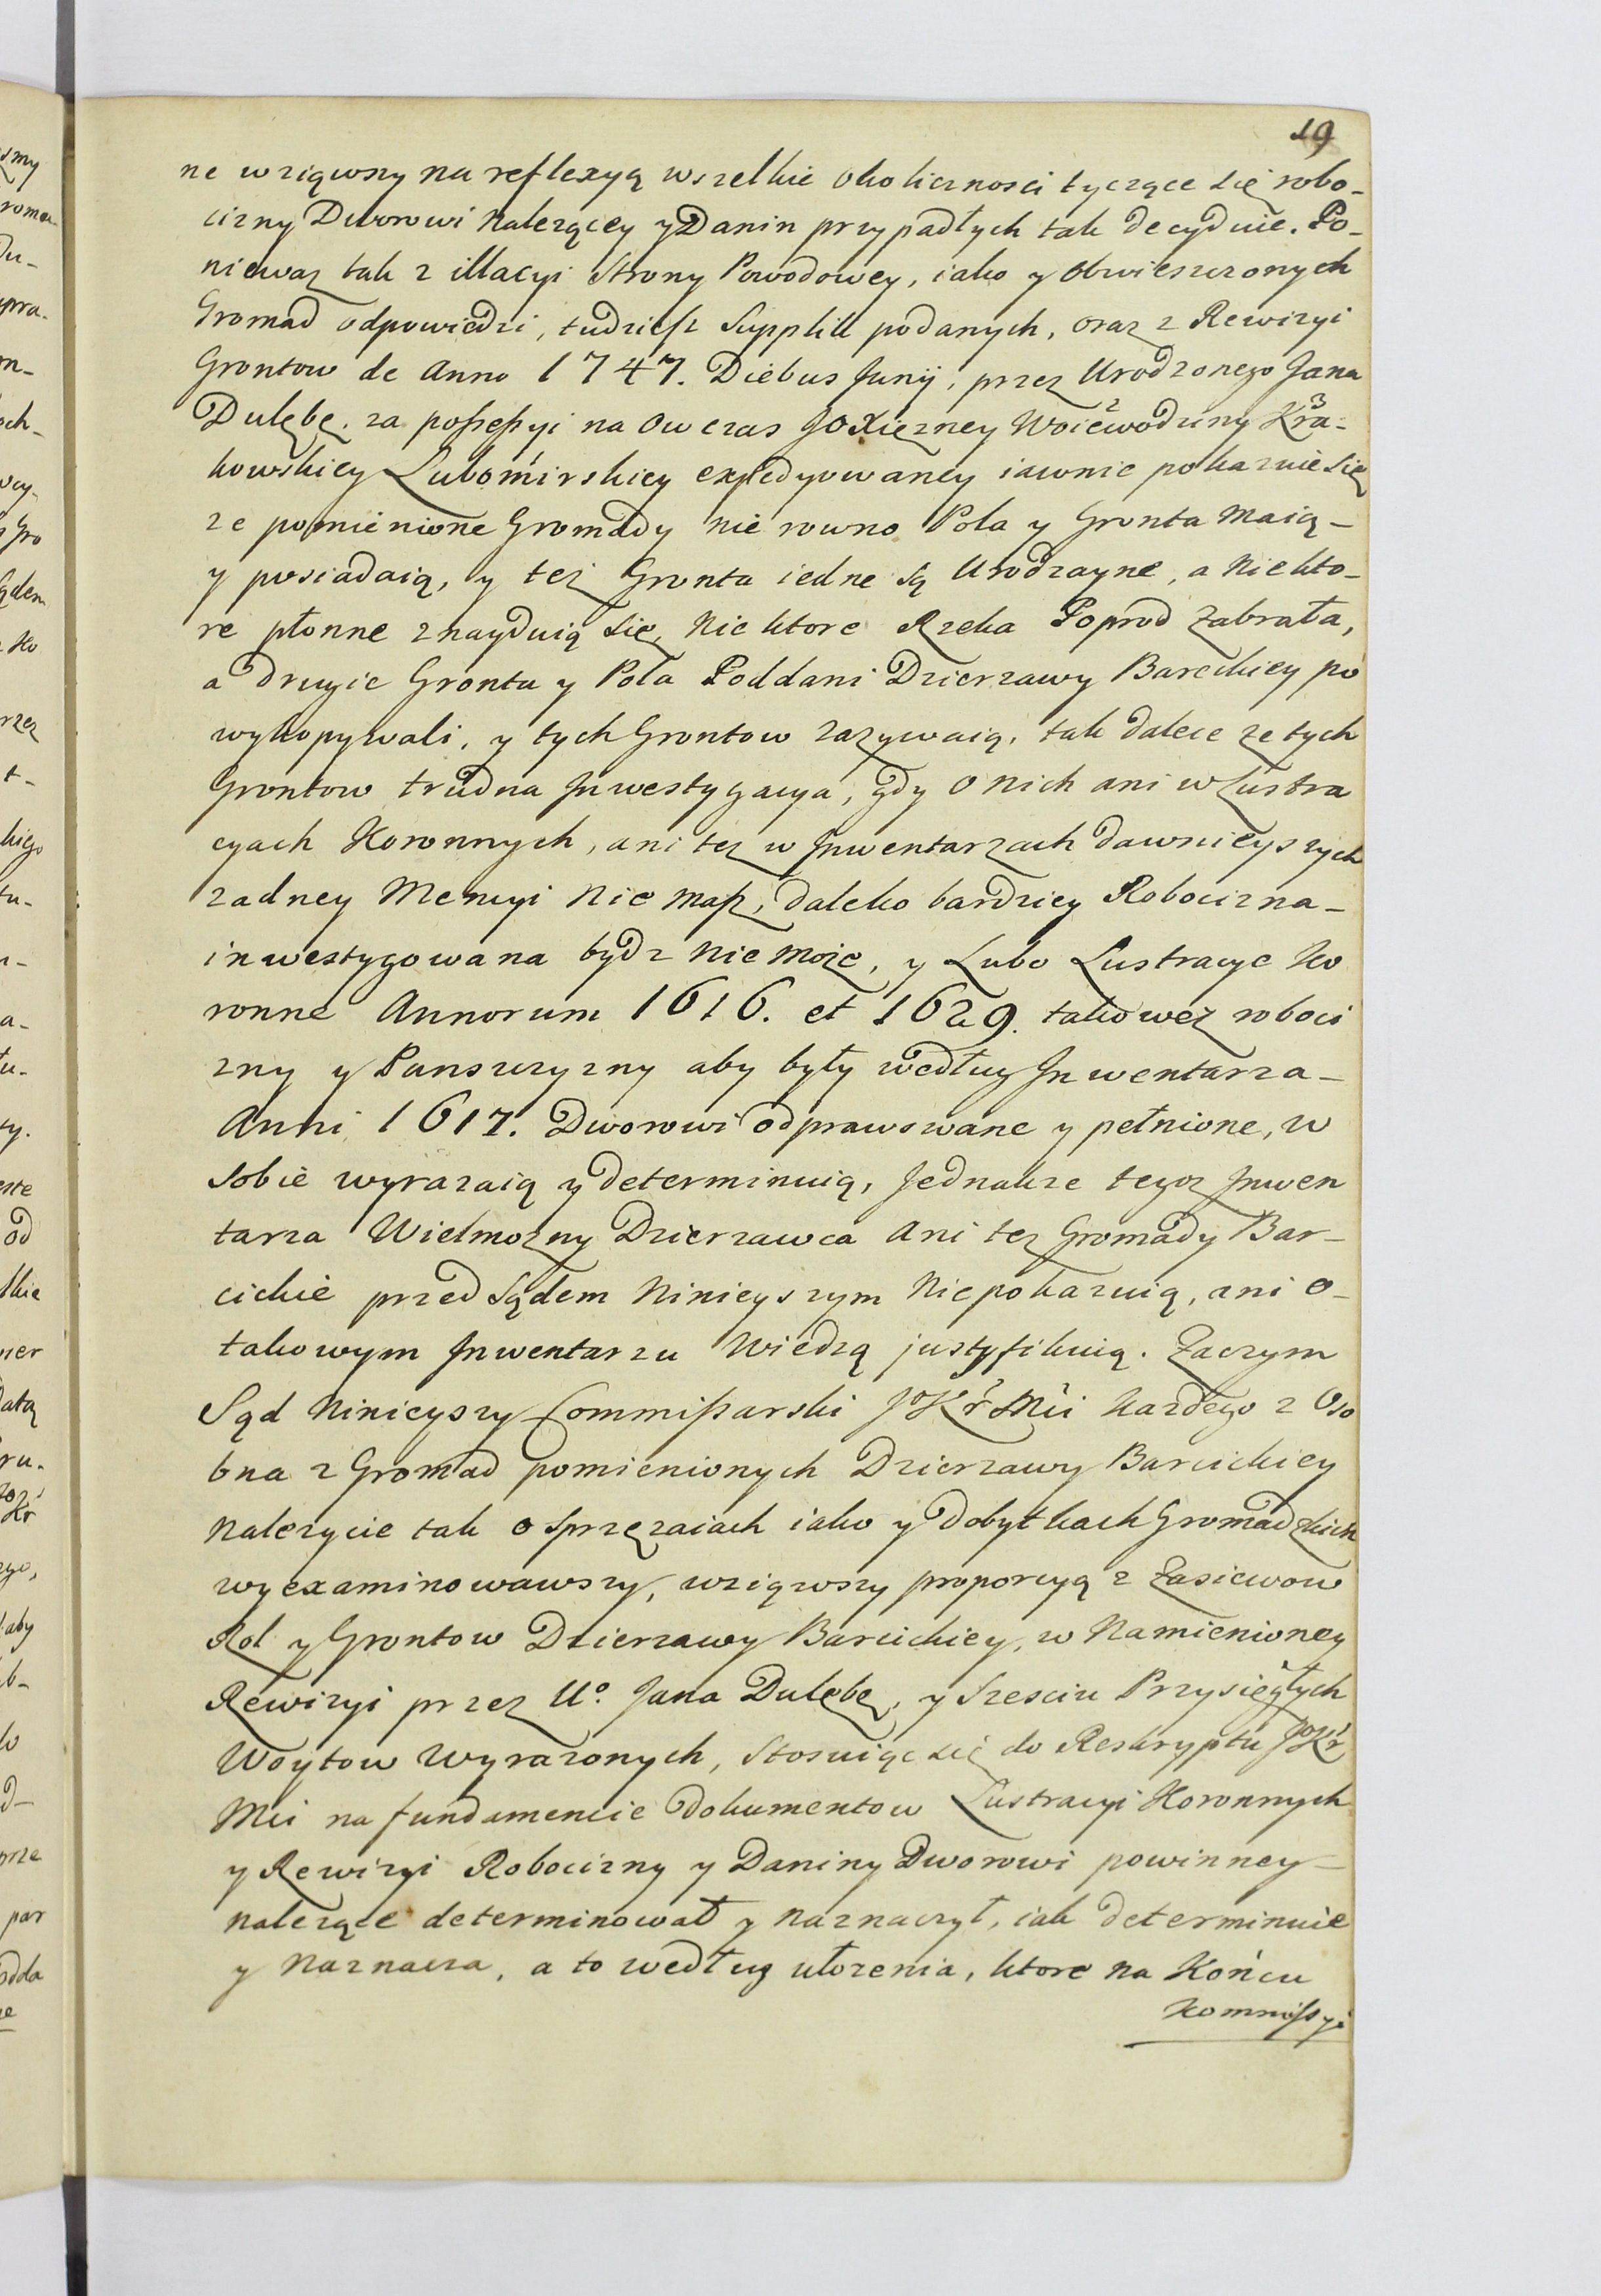 19
ne wziąwszy na reflexyą wszelkie okolicznosci tyczące się robo-
cizny Dworowi należącey y Danin przypadłych tak decyduie. Po-
niewaz tak z illacyi Strony Powodowey, iako y obwieszczonych
Gromad odpowiedzi, tudziesz Supplik podanych, oraz z Rewizyi
Grontow de Anno 1747. Diebus Junij, przez Urodzonego Jana
Dulębę. za possessyi na ow czas JOXiężney Woiewodziny Kra-
kowskiey Lubomirskiey expedyowaney iawnie pokazuie się
ze pomienione Gromady nie rowno Pola y Gronta maią-
y posiadaią, y też Gronta iedne są Urodzayne, a niekto-
re płonne znayduią się, niektore Rzeka Poprod zabrała,
a drugie Gronta y Pola Poddani Dzierzawy Bareckiey po
wykopywali, y tych Grontow zazywaią, tak dalece ze tych
Grontow trudna Inwestygacya, gdy o nich ani w Lustra
cyach Koronnych, ani tez w Inwentarzach dawnieyszych
zadney Mencyi nie masz, daleko bardziey Robocizna-
inwestygowana bydz nie może, y Lubo Lustracye Ko
ronne Annorum 1616. et 1629. takowez roboci
zny y Panszczyzny aby były według Inwentarza-
Anni 1617. Dworowi odprawowane y pełnione, w
sobie wyrazaią y determinuią, Jednakze tegoz Inwen
tarza Wielmozny Dzierzawca ani tez Gromady Bar-
cickie przed Sądem Ninieyszym nie pokazuią, ani o-
takowym Inwentarzu Wiedzą justyfikuią. Zaczym
Sąd Ninieyszy Commissarski JKr Mci każdego z Oso
bna z Gromad pomienionych Dzierzawy Barcickiey
nalezycie tak o sprzęzaiach iako y dobytkach Gromadzkich
wyexaminowawszy, wziąwszy proporcyą z Zasiewow
Rol y Grontow Dzierzawy Barcickiey, w Namienioney
Rewizyi przez Uo. Jana Dulębę, y Szesciu Przysięgłych
Woytow Wyrazonych, Stosuiąc się do Reskryptu JKr
Mci na fundamencie Dokumentow Lustracyi Koronnych
y Rewizyi Robocizny y Daniny Dworowi powinney-
nalezące determinował y naznaczył, iak determinuie
y Naznacza, a to według ułozenia, ktore na Końcu
Kommissyi